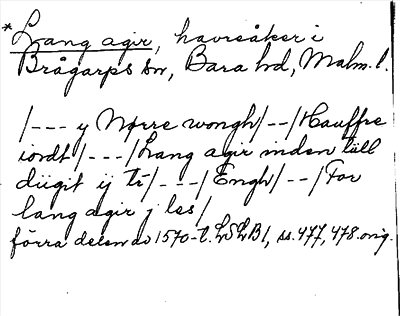 *Lang agir, havreåker i
Brågarps sn, Bara hd, Malm. l.
/--- y Nørre wongh/--/Hauffre
iordt/---/Lang agir inden till
diigit ij ti/---/Engh/--/For
lang agir j les/
förra delen av 1570-t. LSLB1, ss. 477, 478. orig.